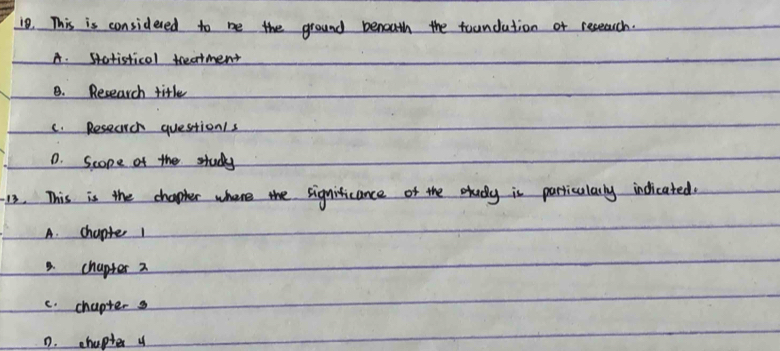 12. This is considered to be the ground beneath the foundation of research.
A. Statistical treatment
B. Research title
C. Research question/s
D. Scope of the study
13. This is the chapter where the significance of the study is particularly indicated.
A. chapter 1
B. chapter 2
C. chapter 3
D. chapter 4